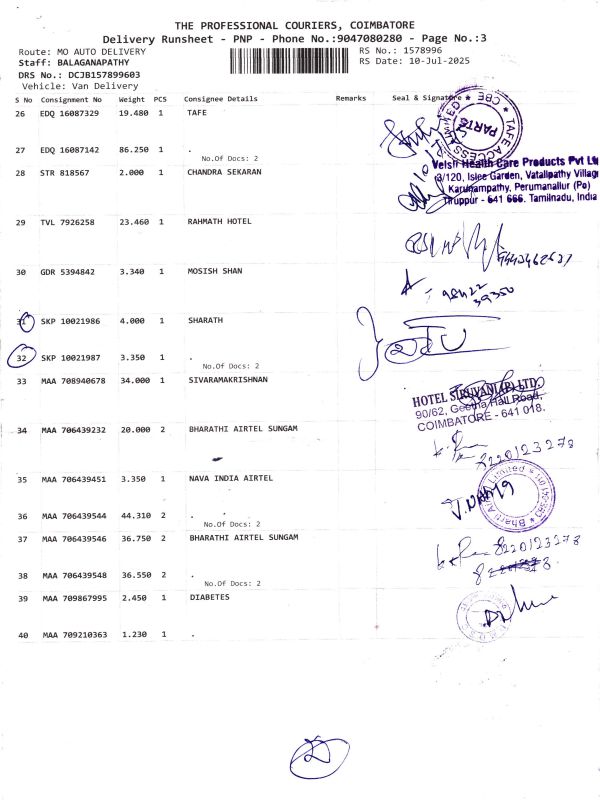 THE PROFESSIONAL COURIERS, COIMBATORE
Delivery Runsheet - PNP - Phone No.:9047080280 - Page No.:3
Route: MO AUTO DELIVERY RS No.: 1578996
Staff: BALAGANAPATHY RS Date: 10-Jul-2025
DRS No.: DCJB157899603
Vehicle: Van Delivery
S No Consignment No Weight PCS Consignee Details Remarks Seal & Signature
26 EDQ 16087329 19.480 1 TAFE
27 EDQ 16087142 86.250 1 .
No.Of Docs: 2
Velsh Health Care Products Pvt
28 STR 818567 2.000 1 CHANDRA SEKARAN
3/120, Islee Garden, Vatalipathy
Karumampathy, Perumanallur (Po)
Tiruppur - 641 666. Tamilnadu, India
29 TVL 7926258 23.460 1 RAHMATH HOTEL
30 GDR 5394842 3.340 1 MOSISH SHAN
98422
39350
31 SKP 10021986 4.000 1 SHARATH
32 SKP 10021987 3.350 1 .
No.Of Docs: 2
33 MAA 708940678 34.000 1 SIVARAMAKRISHNAN
HOTEL SIRUVANI (P) LTD.
90/62, Geetha Hall Road,
COIMBATORE - 641 018.
34 MAA 706439232 20.000 2 BHARATHI AIRTEL SUNGAM
8220123278
35 MAA 706439451 3.350 1 NAVA INDIA AIRTEL
36 MAA 706439544 44.310 2 .
No.Of Docs: 2
37 MAA 706439546 36.750 2 BHARATHI AIRTEL SUNGAM
8220123278
38 MAA 706439548 36.550 2 .
No.Of Docs: 2
39 MAA 709867995 2.450 1 DIABETES
40 MAA 709210363 1.230 1 .